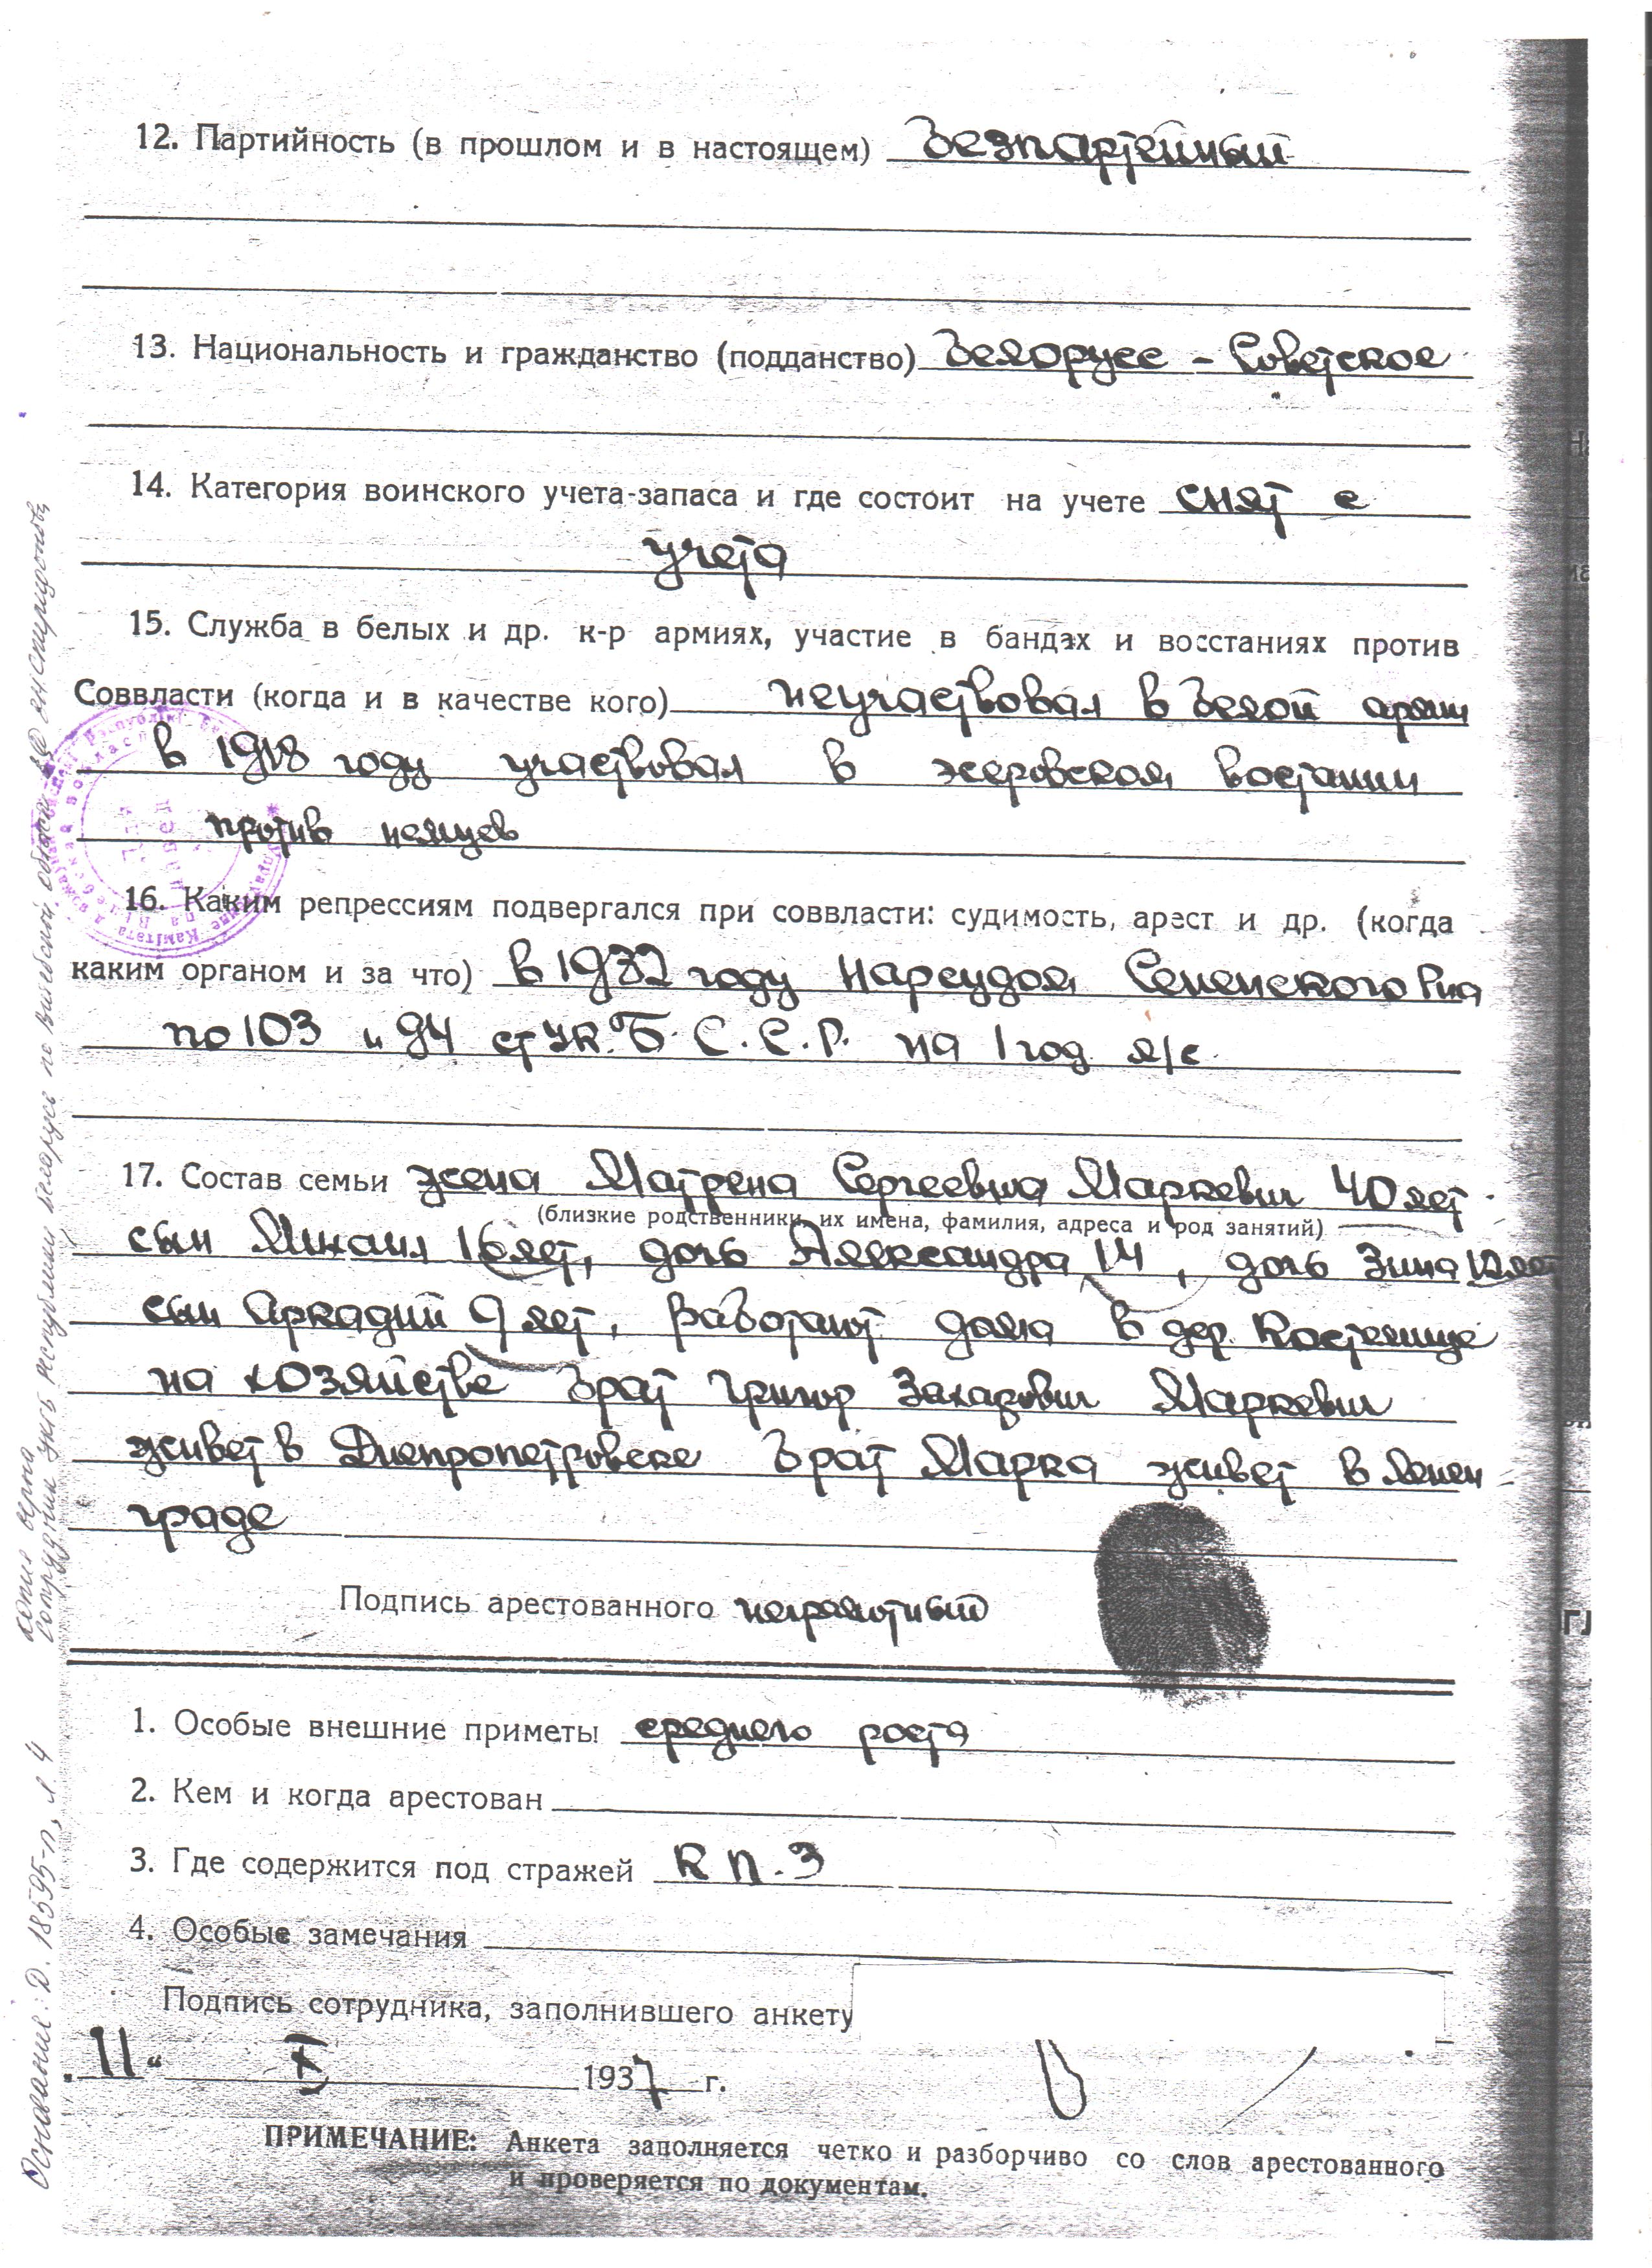 12. Партийность (в прошлом и в настоящем) Безпартейный
13. Национальность и гражданство (подданство) Белорусс - Советское
14. Категория воинского учета-запаса и где состоит на учете снят с
учета
15. Служба в белых и др. к-р армиях, участие в бандах и восстаниях против
Соввласти (когда и в качестве кого) неучаствовал в белой армии
в 1918 году участвовал в эсеровском востании
против немцев
16. Каким репрессиям подвергался при соввласти: судимость, арест и др. (когда
каким органом и за что) в 1932 году Нарсудом Сененского Рна
по 103 и 94 ст УК. Б. С. С. Р. на 1 год л/с
17. Состав семьи жена Матрена Сергеевна Маркевич 40 лет
(близкие родственники, их имена, фамилия, адреса и род занятий)
сын Михаил 16 лет, дочь Александра 14, дочь Зина 12 лет
сын Аркадий 9 лет, работают дома в дер.
на хозяйстве брат Григор Захарович Маркевич
живет в Днепропетровске брат Марка живет в Ленен
граде
Подпись арестованного неграмотный
1. Особые внешние приметы среднего роста
2. Кем и когда арестован
3. Где содержится под стражей К П. З
4. Особые замечания
Подпись сотрудника, заполнившего анкету
„11“ 1937 г.
ПРИМЕЧАНИЕ: Анкета заполняется четко и разборчиво со слов арестованного
и проверяется по документам.
Основание: Д. 18595-п, л 4
копия верна
сотрудник УКГБ республики Беларусь по Витебской области